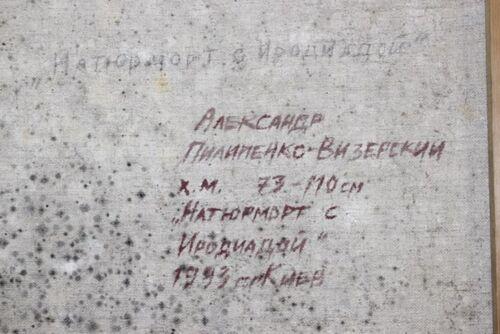 „Натюрморт с Иродиадой"
Александр
Пилипенко-Визерский
х.м. 73-110 см
„Натюрморт с
Иродиадой"
1993 г Киев